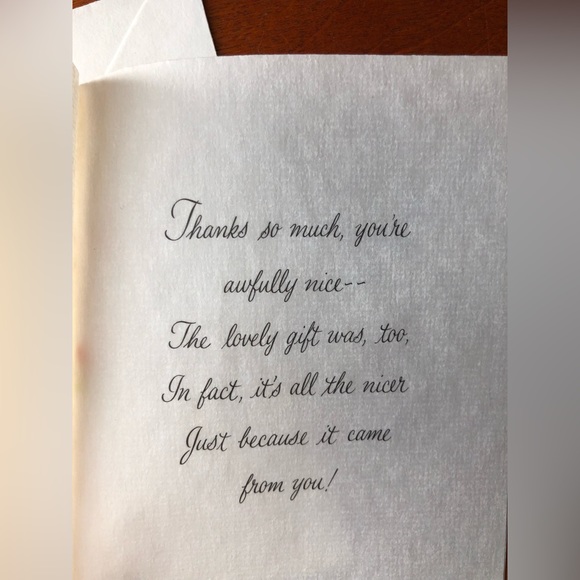 Thanks so much, you're
awfully nice--
The lovely gift was, too,
In fact, it's all the nicer
Just because it came
from you!